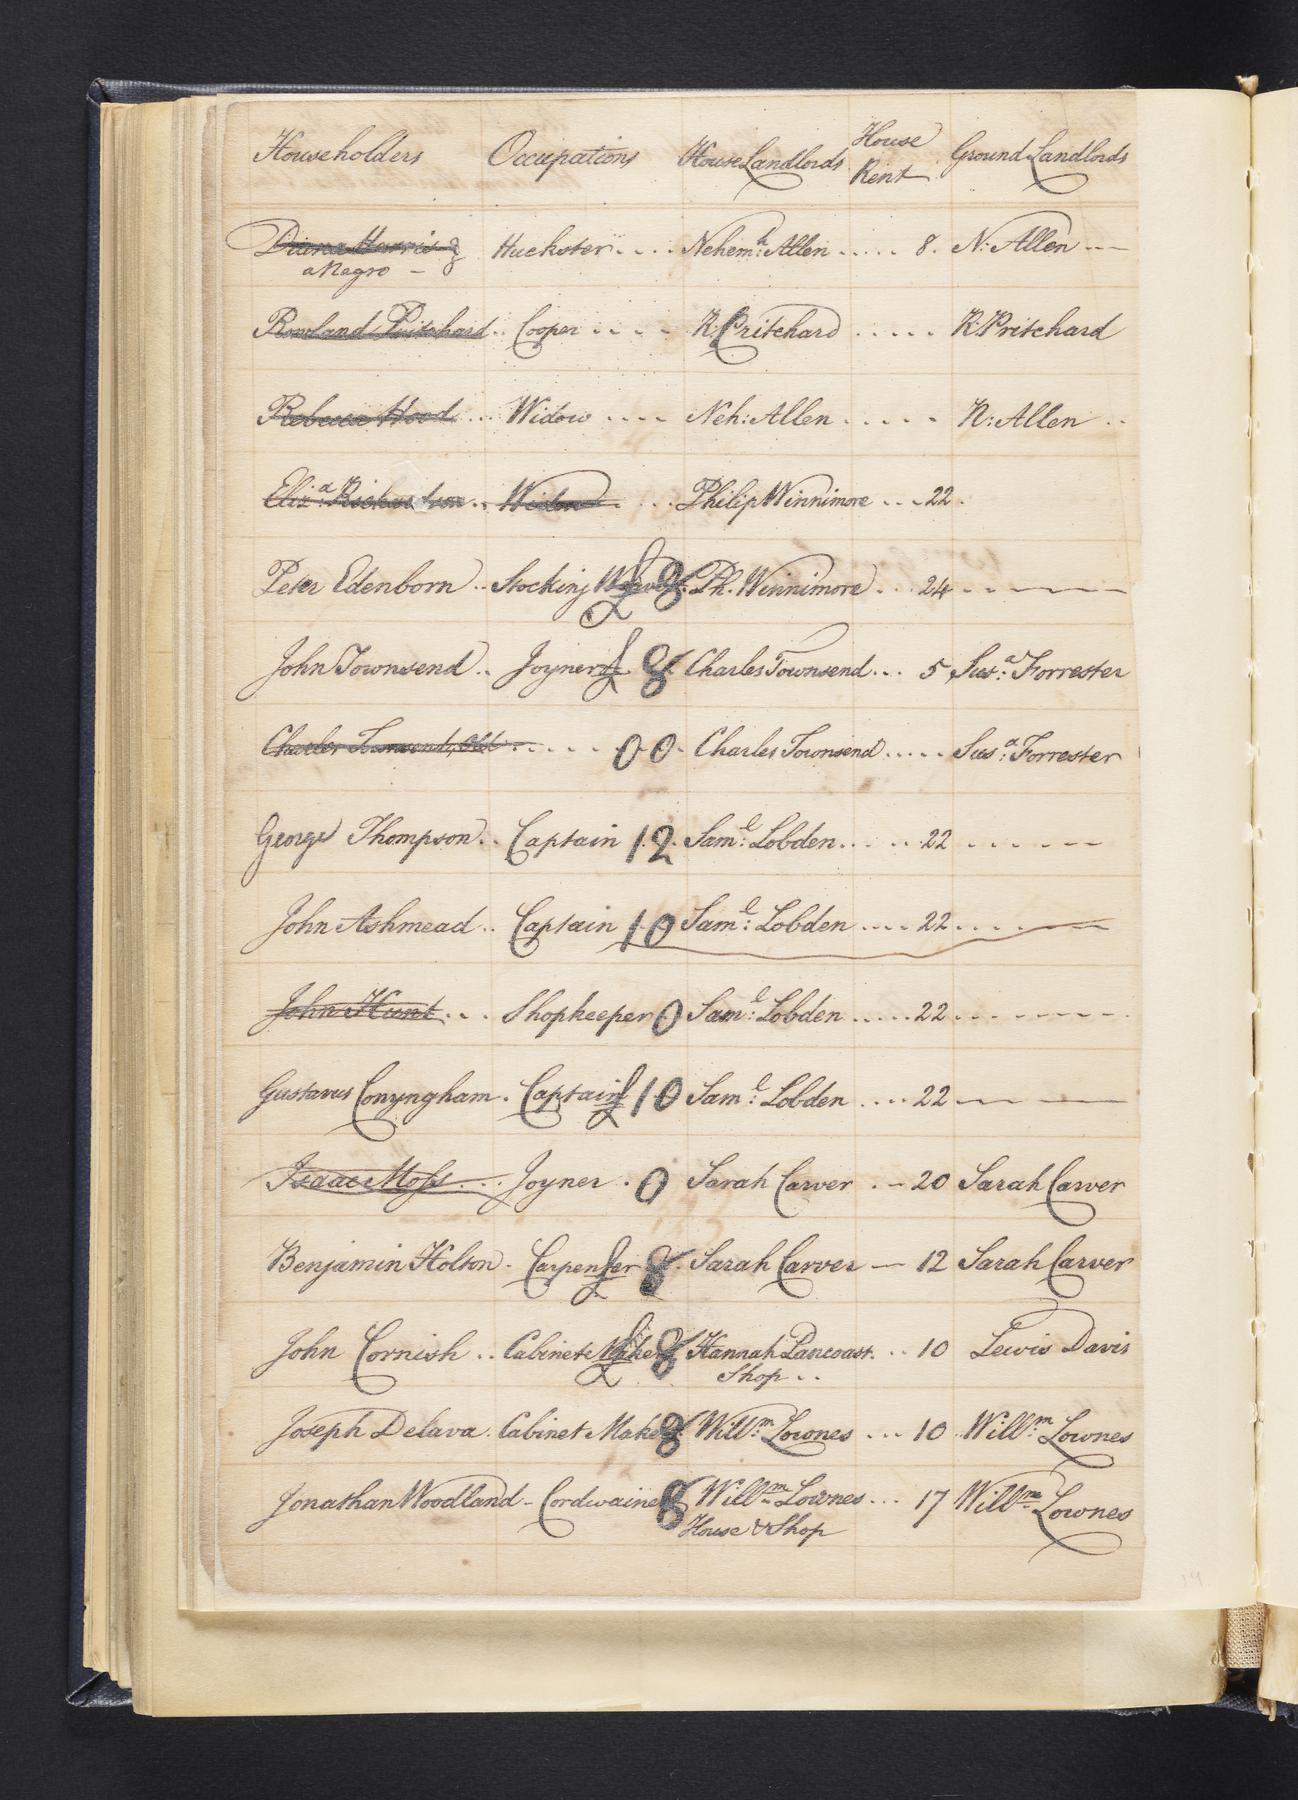 Householders Occupations House Landlords House Rent Ground Landlords
Diana Harris a Negro - Huckster .... Nehem:h Allen ..... 8. N: Allen ---
Rowland Pritchard .. Cooper .... R: Pritchard ..... R: Pritchard
Rebecca Hood ... Widow .... Neh: Allen ..... N: Allen ..
Eliz:a Richardson .. Widow ... Philip Winnimore ... 22.
Peter Edenborn .. Stocking Weaver 8 Ph. Winnimore ... 24 ----
John Townsend .. Joyner 8 Charles Townsend ... 5 Sus:a Forrester
Charles Townsend, Old ..... 0 0 Charles Townsend ..... Sus:a Forrester
George Thompson .. Captain 12 Sam:l Lobden ..... 22 ......
John Ashmead .. Captain 10 Sam:l Lobden .... 22 ......
John Hunt ... Shopkeeper 0 Sam:l Lobden ..... 22 ........
Gustavus Conyngham . Captain 10 Sam:l Lobden .... 22 ----
Isaac Moss ... Joyner . 0 Sarah Carver . - 20 Sarah Carver
Benjamin Holton . Carpenter 8 Sarah Carver - 12 Sarah Carver
John Cornish .. Cabinet Maker 8 Hannah Pancoast. .. 10 Lewis Davis
Shop ..
Joseph Delava . Cabinet Maker 8 Will:m Lownes ... 10 Will:m Lownes
Jonathan Woodland - Cordwainer 8 Will:m Lownes ... 17 Will:m Lownes
House & Shop
19